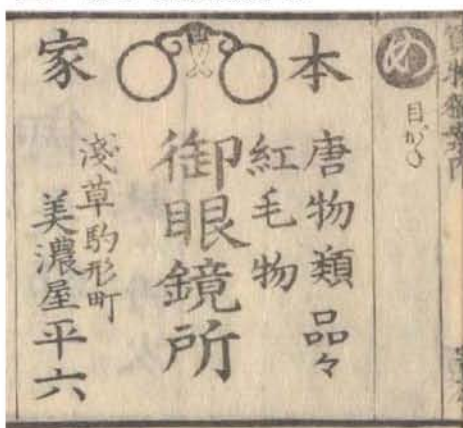 め
目がね
本家
唐物類 品々
紅毛物
御眼鏡所
淺草駒形町
美濃屋平六